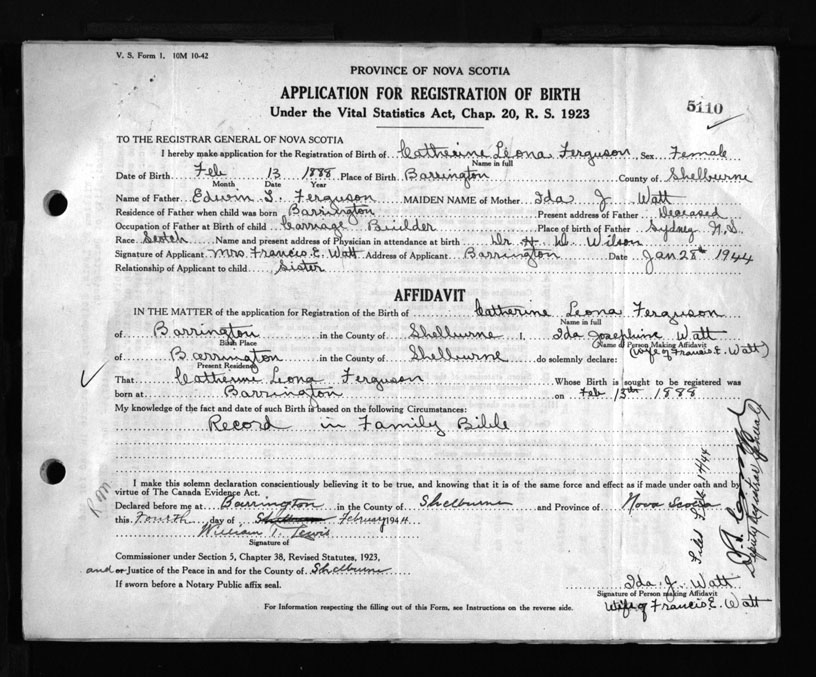 V. S. Form 1. 10M 10-42
PROVINCE OF NOVA SCOTIA
APPLICATION FOR REGISTRATION OF BIRTH
5110
Under the Vital Statistics Act, Chap. 20, R. S. 1923
TO THE REGISTRAR GENERAL OF NOVA SCOTIA
I hereby make application for the Registration of Birth of Catherine Leona Ferguson Sex Female
Name in full
Date of Birth Feb 13 1888 Place of Birth Barrington County of Shelburne
Month Date Year
Name of Father Edwin S. Ferguson MAIDEN NAME of Mother Ida J. Watt
Residence of Father when child was born Barrington Present address of Father Deceased
Occupation of Father at Birth of child Carriage Builder Place of birth of Father Sydney N.S.
Race Scotch Name and present address of Physician in attendance at birth Dr. H. D. Wilson
Signature of Applicant Mrs. Francis E. Watt Address of Applicant Barrington Date Jan 28th 1944
Relationship of Applicant to child Sister
AFFIDAVIT
IN THE MATTER of the application for Registration of the Birth of Catherine Leona Ferguson
Name in full
of Barrington in the County of Shelburne I, Ida Josephine Watt
Birth Place (Name of Person Making Affidavit
of Barrington in the County of Shelburne do solemnly declare: (Wife of Francis E. Watt)
Present Residence
That Catherine Leona Ferguson Whose Birth is sought to be registered was
born at Barrington on Feb 13th 1888
My knowledge of the fact and date of such Birth is based on the following Circumstances:
Record in Family Bible
I make this solemn declaration conscientiously believing it to be true, and knowing that it is of the same force and effect as if made under oath and by
virtue of The Canada Evidence Act.
Declared before me at Barrington in the County of Shelburne and Province of Nova Scotia
this Fourth day of Shelburne February 1944
William T. Lewis
Signature of
Commissioner under Section 5, Chapter 38, Revised Statutes, 1923,
and or Justice of the Peace in and for the County of Shelburne
If sworn before a Notary Public affix seal.
Ida J. Watt
Signature of Person making Affidavit
Wife of Francis E. Watt
For Information respecting the filling out of this Form, see Instructions on the reverse side.
Deputy Registrar General